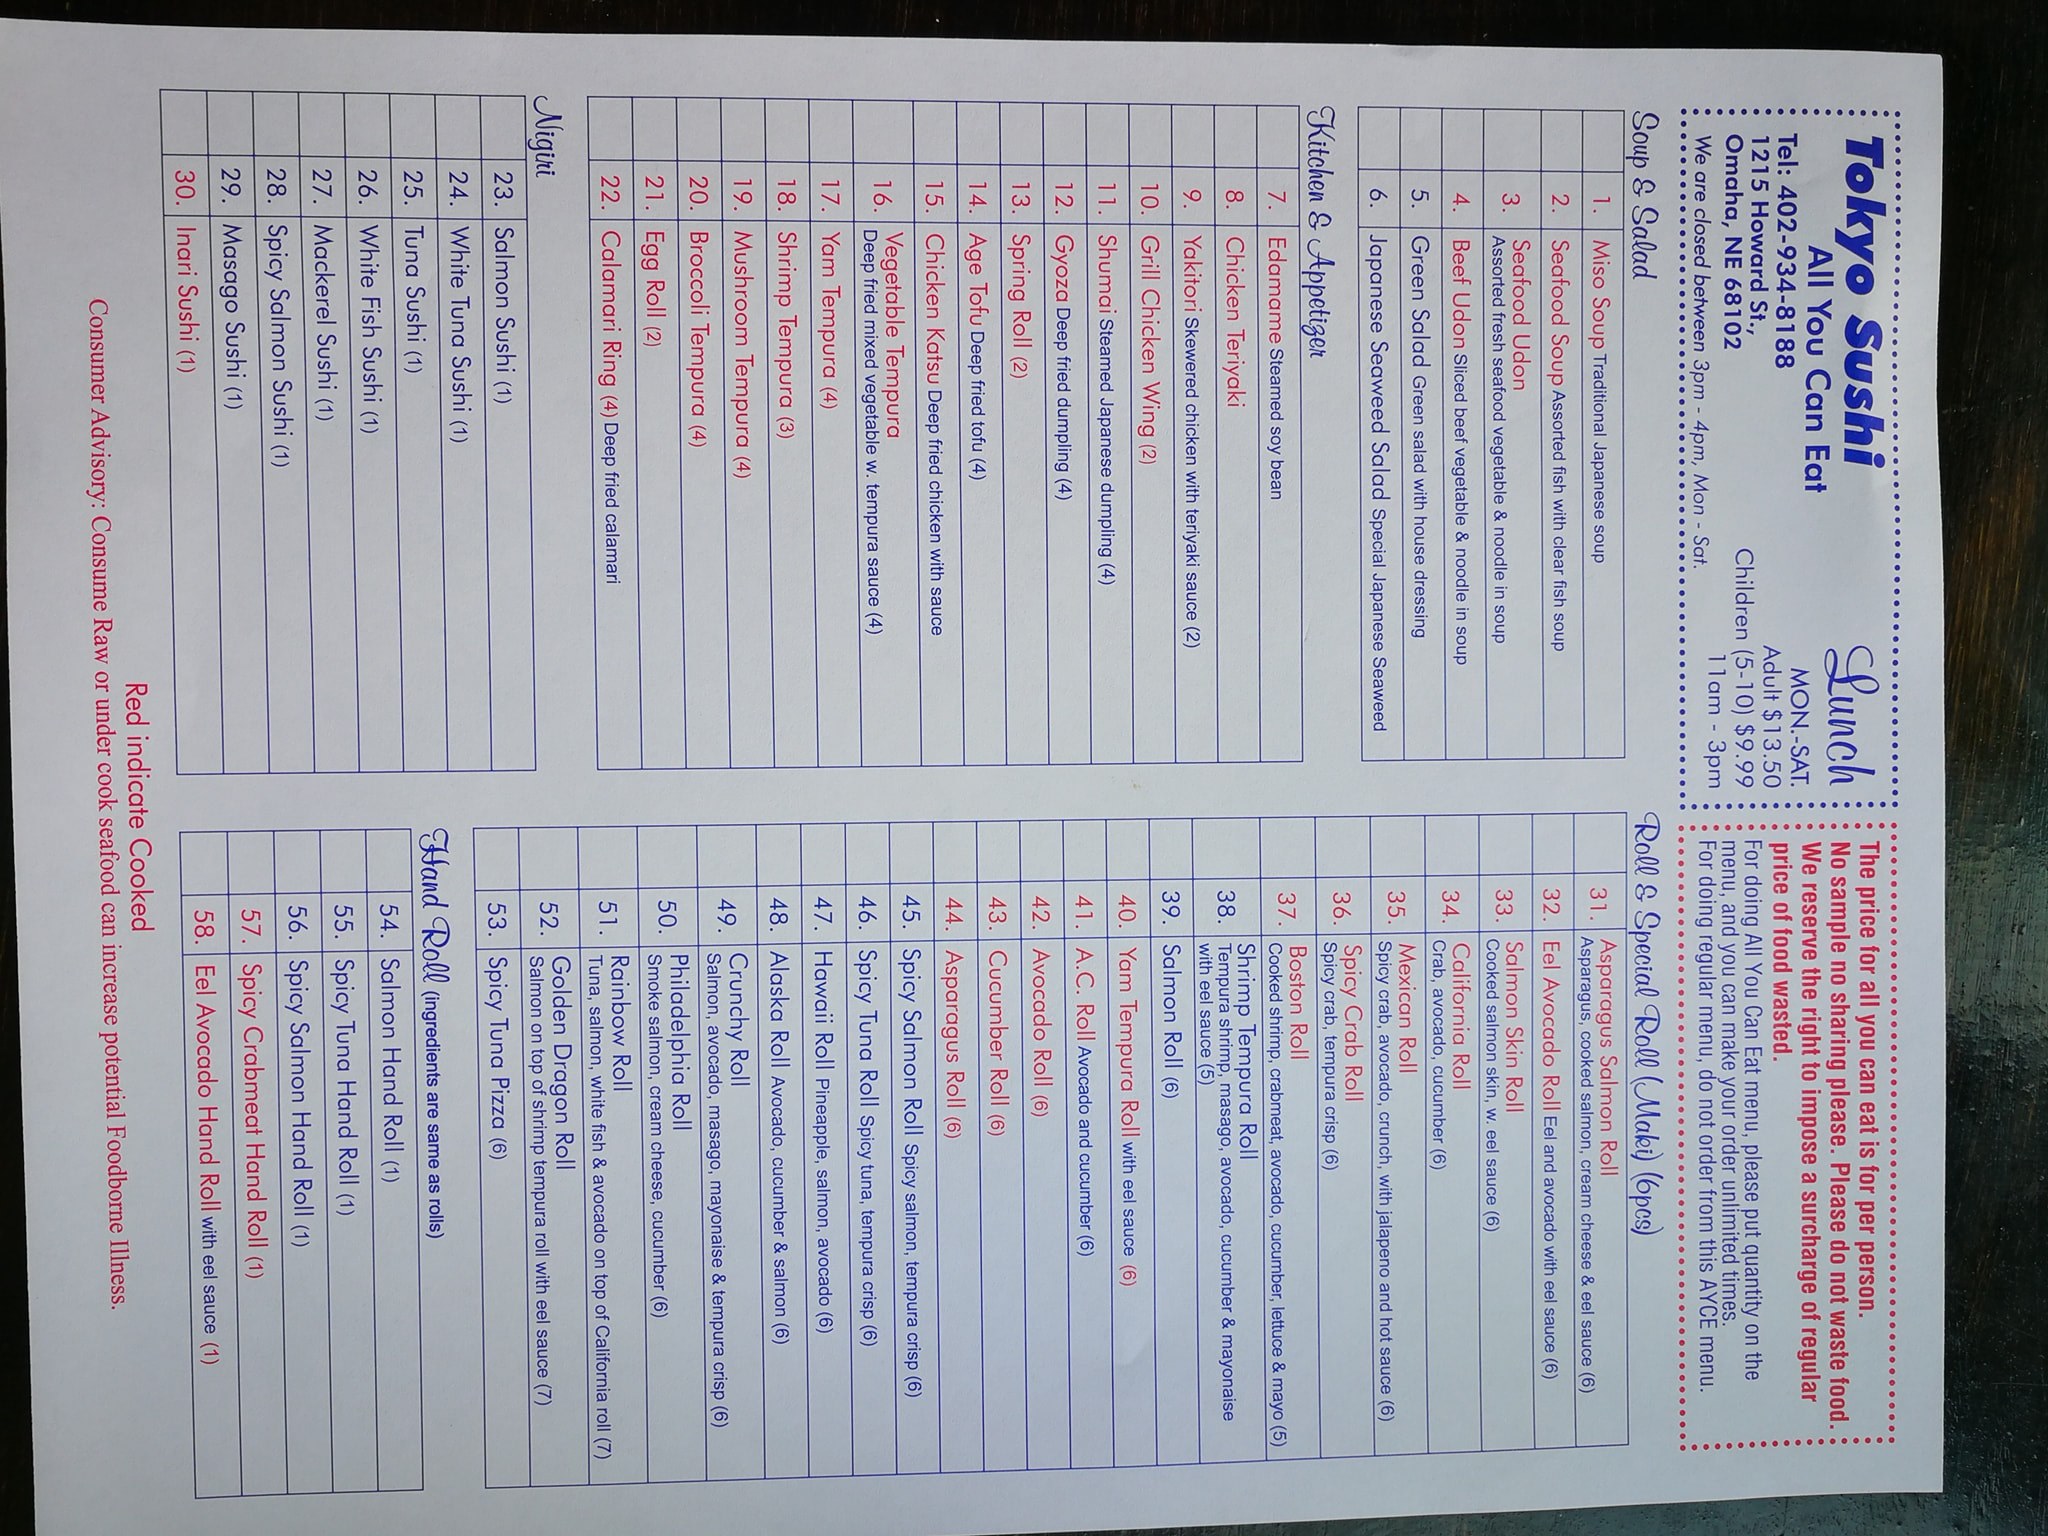 Tokyo Sushi
All You Can Eat
Tel: 402-934-8188
1215 Howard St.,
Omaha, NE 68102
We are closed between 3pm - 4pm, Mon - Sat.
Lunch
MON.-SAT.
Adult $13.50
Children (5-10) $9.99
11am - 3pm
The price for all you can eat is for per person.
No sample no sharing please. Please do not waste food.
We reserve the right to impose a surcharge of regular
price of food wasted.
For doing All You Can Eat menu, please put quantity on the
menu, and you can make your order unlimited times.
For doing regular menu, do not order from this AYCE menu.
Soup & Salad
1. Miso Soup Traditional Japanese soup
2. Seafood Soup Assorted fish with clear fish soup
3. Seafood Udon
Assorted fresh seafood vegetable & noodle in soup
4. Beef Udon Sliced beef vegetable & noodle in soup
5. Green Salad Green salad with house dressing
6. Japanese Seaweed Salad Special Japanese Seaweed
Kitchen & Appetizer
7. Edamame Steamed soy bean
8. Chicken Teriyaki
9. Yakitori Skewered chicken with teriyaki sauce (2)
10. Grill Chicken Wing (2)
11. Shumai Steamed Japanese dumpling (4)
12. Gyoza Deep fried dumpling (4)
13. Spring Roll (2)
14. Age Tofu Deep fried tofu (4)
15. Chicken Katsu Deep fried chicken with sauce
16. Vegetable Tempura
Deep fried mixed vegetable w. tempura sauce (4)
17. Yam Tempura (4)
18. Shrimp Tempura (3)
19. Mushroom Tempura (4)
20. Broccoli Tempura (4)
21. Egg Roll (2)
22. Calamari Ring (4) Deep fried calamari
Nigiri
23. Salmon Sushi (1)
24. White Tuna Sushi (1)
25. Tuna Sushi (1)
26. White Fish Sushi (1)
27. Mackerel Sushi (1)
28. Spicy Salmon Sushi (1)
29. Masago Sushi (1)
30. Inari Sushi (1)
Roll & Special Roll (Maki) (6pcs)
31. Asparagus Salmon Roll
Asparagus, cooked salmon, cream cheese & eel sauce (6)
32. Eel Avocado Roll Eel and avocado with eel sauce (6)
33. Salmon Skin Roll
Cooked salmon skin, w. eel sauce (6)
34. California Roll
Crab, avocado, cucumber (6)
35. Mexican Roll
Spicy crab, avocado, crunch, with jalapeno and hot sauce (6)
36. Spicy Crab Roll
Spicy crab, tempura crisp (6)
37. Boston Roll
Cooked shrimp, crabmeat, avocado, cucumber, lettuce & mayo (5)
38. Shrimp Tempura Roll
Tempura shrimp, masago, avocado, cucumber & mayonaise
with eel sauce (5)
39. Salmon Roll (6)
40. Yam Tempura Roll with eel sauce (6)
41. A.C. Roll Avocado and cucumber (6)
42. Avocado Roll (6)
43. Cucumber Roll (6)
44. Asparagus Roll (6)
45. Spicy Salmon Roll Spicy salmon, tempura crisp (6)
46. Spicy Tuna Roll Spicy tuna, tempura crisp (6)
47. Hawaii Roll Pineapple, salmon, avocado (6)
48. Alaska Roll Avocado, cucumber & salmon (6)
49. Crunchy Roll
Salmon, avocado, masago, mayonaise & tempura crisp (6)
50. Philadelphia Roll
Smoke salmon, cream cheese, cucumber (6)
51. Rainbow Roll
Tuna, salmon, white fish & avocado on top of California roll (7)
52. Golden Dragon Roll
Salmon on top of shrimp tempura roll with eel sauce (7)
53. Spicy Tuna Pizza (6)
Hand Roll (ingredients are same as rolls)
54. Salmon Hand Roll (1)
55. Spicy Tuna Hand Roll (1)
56. Spicy Salmon Hand Roll (1)
57. Spicy Crabmeat Hand Roll (1)
58. Eel Avocado Hand Roll with eel sauce (1)
Red indicate Cooked
Consumer Advisory: Consume Raw or under cook seafood can increase potential Foodborne Illness.